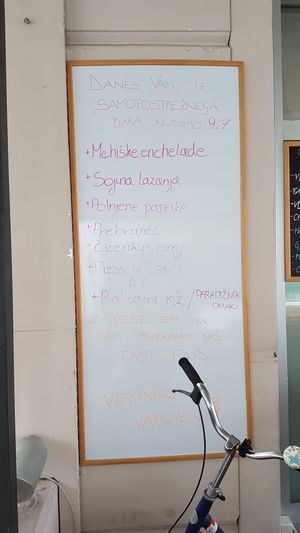 DANES VAM IZ
SAMOPOSTREŽNEGA
BARA NUDIMO 9.7
+Mehiške enchelade
+Sojina lazanja
+Polnjene paprike
+Prebranec
-Čičerikin curry
+Pizza
+ riž / PARADIŽNIK
OMAKA
Z VESELJEM PA
VAM PRIPRAVIMO NAŠ
FAST FOOD
VLJUDNO
VABLJENI